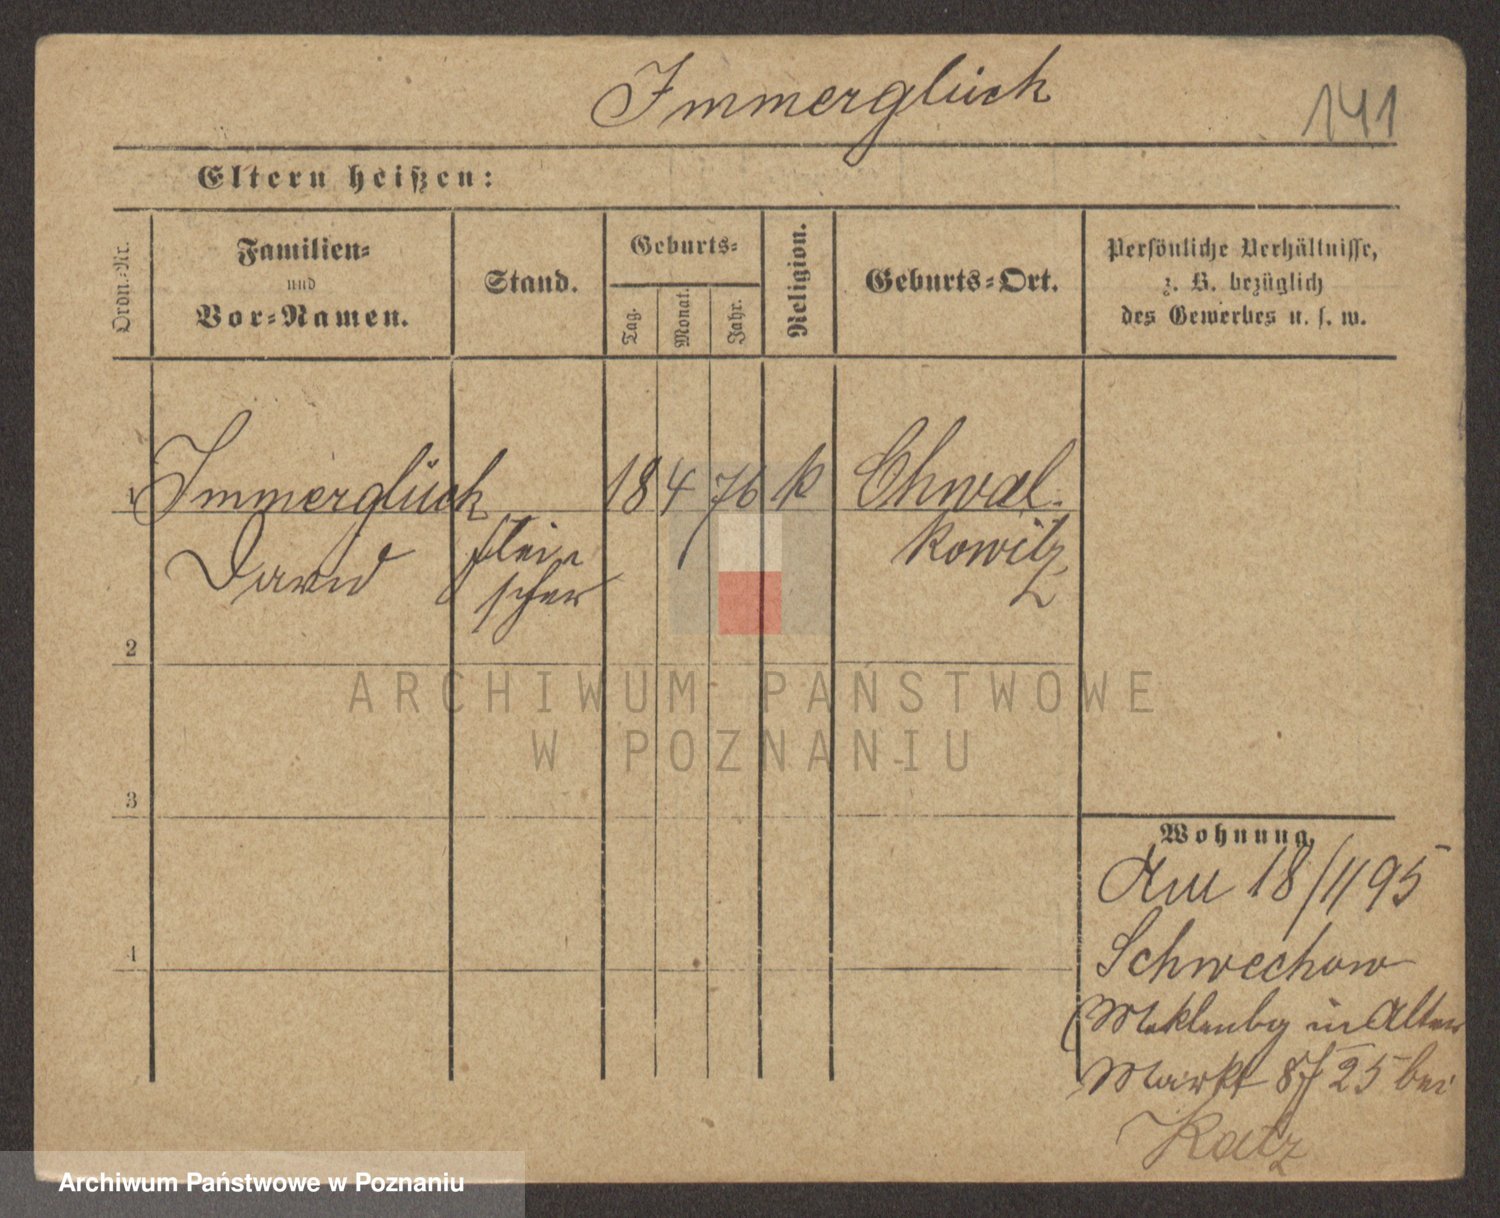 Immerglück
141
Eltern heißen:
Ordn.-Nr.
Familien-
und
Vor-Namen.
Stand.
Geburts-
Tag.
Monat.
Jahr.
Religion.
Geburts-Ort.
Persönliche Verhältnisse,
z. B. bezüglich
des Gewerbes u. s. w.
1 Immerglück 18 4 76 k Chwal-
David Flei- kowitz
scher
2
3
4
Wohnung
Am 18/11 95
Schwechow
Meklenbg in Alter
Markt 87 25 bei
Katz
ARCHIWUM PAŃSTWOWE
W POZNANIU
Archiwum Państwowe w Poznaniu